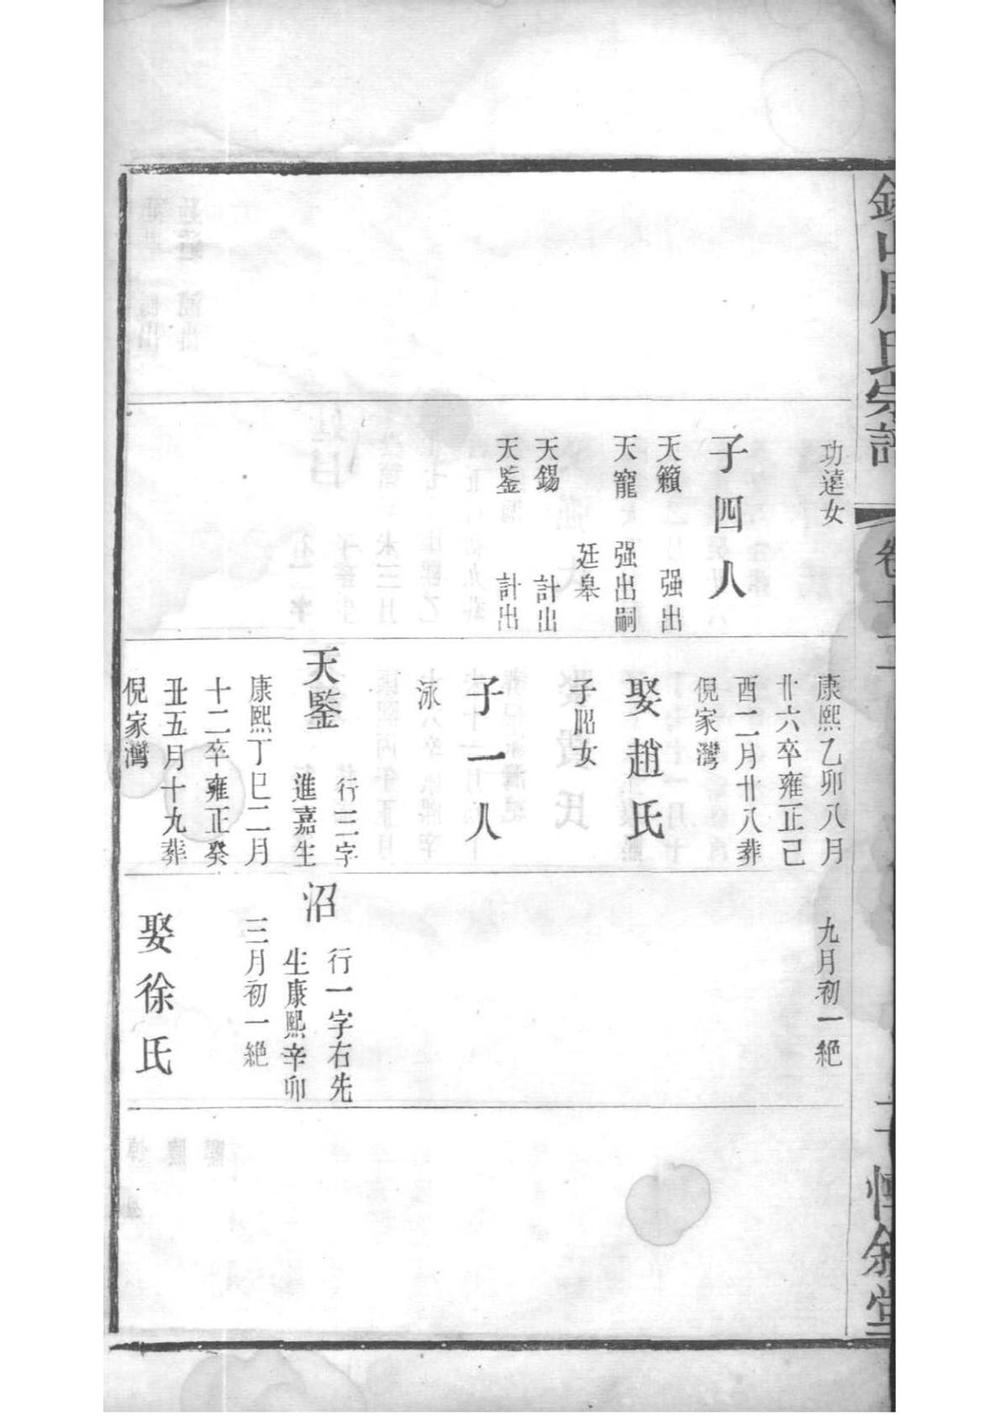 山周氏宗譜
功達女
子四人
天籟 强出
天寵 强出嗣
廷皋
天錫 計出
天鍳 計出
康熙乙卯八月
廿六卒雍正己
酉二月廿八葬
倪家灣
娶趙氏
子昭女
子一人
泳
天鍳
行三字
進嘉生
康熙丁巳二月
十二卒雍正癸
丑五月十九葬
倪家灣
九月初一絶
沼
行一字右先
生康熙辛卯
三月初一絶
娶徐氏
惇叙堂